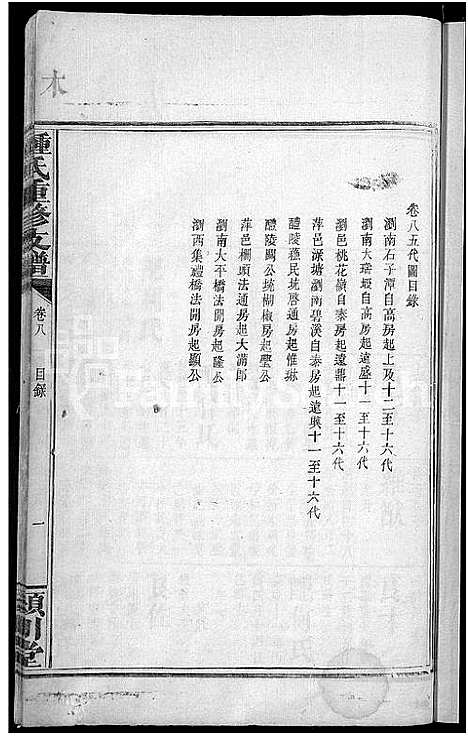 卷八五代圖目錄
瀏南石子潭自高房起上及十二至十六代
瀏南大瑤塅自高房起遠盛十一至十六代
瀏邑桃花嶺自泰房起遠器十一至十六代
萍邑深塘瀏南碧溪自泰房起遠興十一至十六代
醴陵蘓民統啓通房起惟琳
醴陵閩公統楜椒房起璺公
萍邑欄頭法通房起大滿郎
瀏南大平橋法開房起隆公
瀏西集禮橋法開房起顯公
鍾氏重修支譜
卷八
目錄
一
潁川堂
木